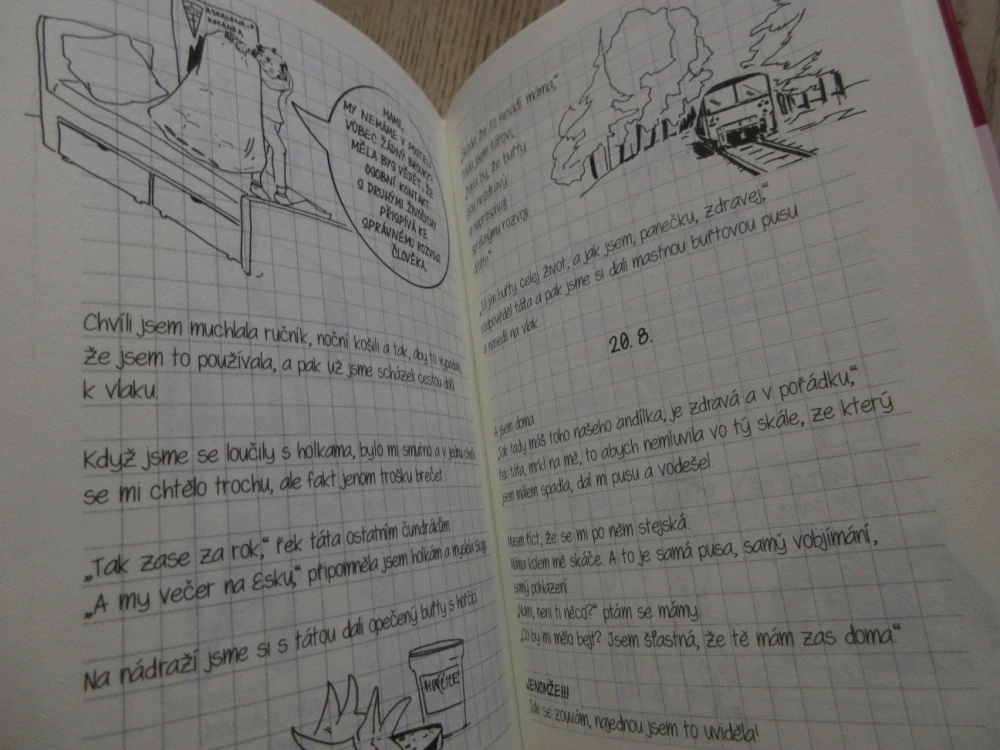 MAMI,
MY NEMÁME V POSTELI
VŮBEC ŽÁDNÝ BROUKY!
MĚLA BYS VĚDĚT, ŽE
OSOBNÍ KONTAKT
S DRUHÝMI ŽIVOČICHY
PŘISPÍVÁ KE
SPRÁVNÉMU ROZVOJI
ČLOVĚKA.
Chvíli jsem muchlala ručník, noční košili a tak, aby to vypadalo,
že jsem to používala, a pak už jsme scházeli cestou dolů
k vlaku.
Když jsme se loučily s holkama, bylo mi smutno a v jednu chvíli
se mi chtělo trochu, ale fakt jenom trošku brečet.
„Tak zase za rok,“ řek táta ostatním čundrákům.
„A my večer na Esku,“ připomněla jsem holkám a myslela
Na nádraží jsme si s tátou dali opečený buřty s hořčicí.
HOŘČICE
že to nevidí máma,“
jsem tátovi,
by, že buřty
jsou nezdravý
a neprospívaj
správnýmu rozvoji
dítěte.“
„Já jím buřty celej život, a jak jsem, panečku, zdravej,“
odpověděl táta a pak jsme si dali mastnou buřtovou pusu
a nasedli na vlak.
20. 8.
A jsem doma.
„Tak tady máš toho našeho andílka, je zdravá a v pořádku,“
řek táta, mrkl na mě, to abych nemluvila vo tý skále, ze který
jsem málem spadla, dal mi pusu a vodešel.
Musím říct, že se mi po něm stejská.
Máma kolem mě skáče. A to je samá pusa, samý vobjímání,
samý pohlazení.
„Mami, není ti něco?“ ptám se mámy.
„Co by mi mělo bejt? Jsem šťastná, že tě mám zas doma.“
JENOMŽE!!!
Jak se zouvám, najednou jsem to uviděla!